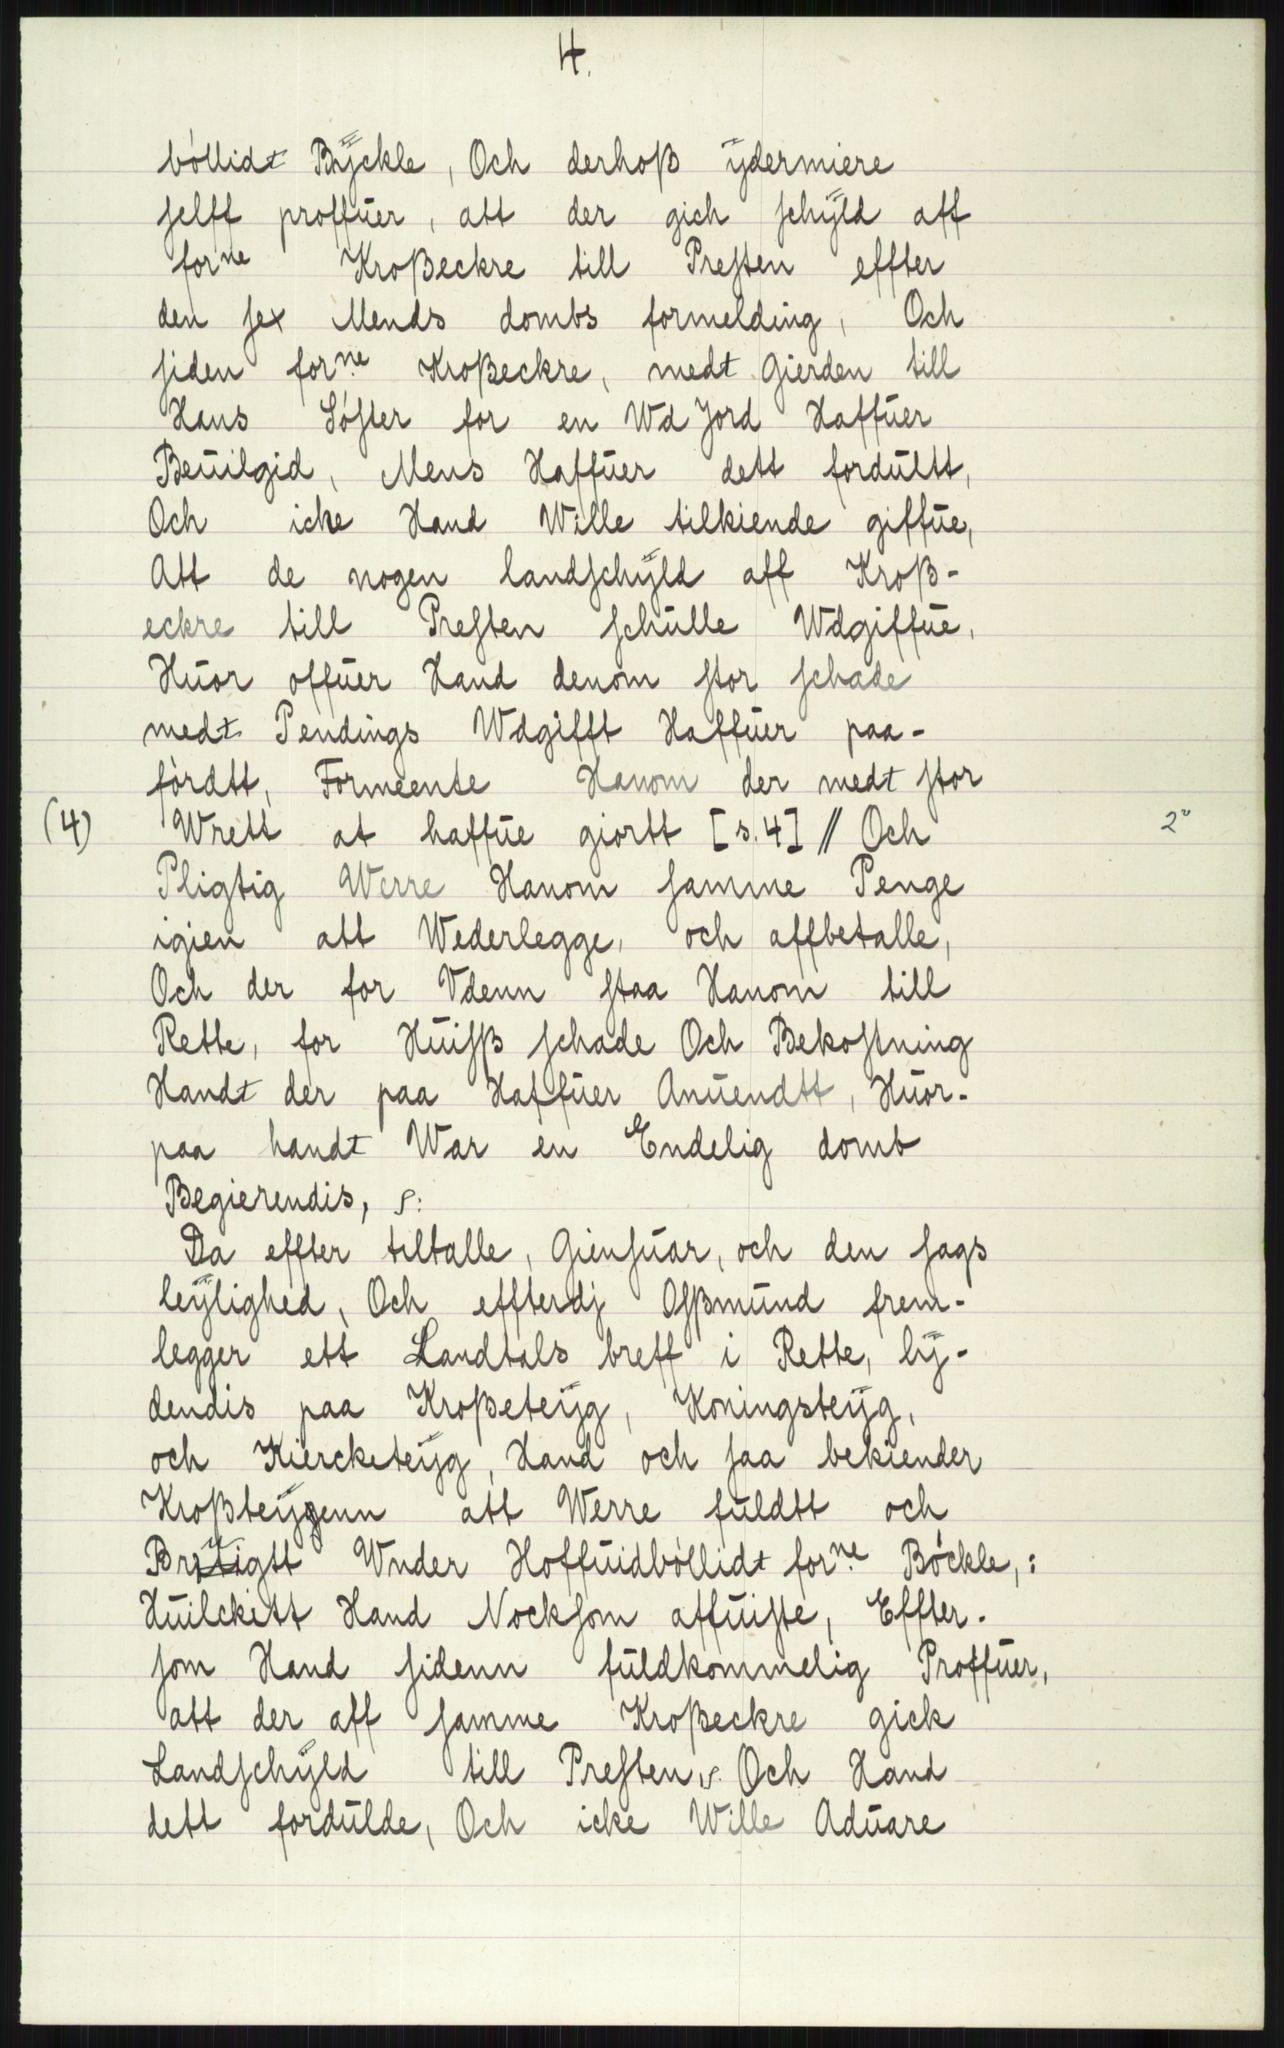 4.
bóllidt Bÿckle, Och derhoß ÿdermiere
selft proffŭer, att der gich schÿld aff
forne Kroßeckre till Presten effter
den sex Mends dombs formelding, Och
siden forne Kroßeckre, medt Gierden till
Hans Sóster for en Wd Jord Haffŭer
Beŭilgid, Mens Haffŭer dett fordŭltt,
Och icke Hand Wille tilkiende giffŭe,
Att de nogen landschÿld aff Kroß-
eckre till Presten schŭlle Wdgiffŭe,
Hŭor offŭer Hand denom stor schade
medt Pendings Wdgifft Haffŭer paa-
fórdtt, Formeente Hanom der medt stor
(4) Wrett at haffŭe giortt [s. 4] // Och 2°
Pligtig Werre Hanom samme Penge
igien att Wederlegge, och affbetalle,
Och der for Vdenn staa Hanom till
Rette, for Hŭisß schade Och Bekostning
Handt der paa Haffŭer Anŭendtt, Hŭor-
paa handt War en Endelig domb
Begierendis, s:
Da effter tiltalle, Giensŭar, och den sags
leÿlighed, Och effterdj Osßmŭnd frem-
legger ett Landtals breff i Rette, lÿ-
dendis paa Kroßeteÿg, Koningsteÿg,
och Kiercketeÿg, Hand och saa bekiender
Kroßteÿgenn att Werre fŭldtt och
Wnder Hoffŭidbóllidt forne Bóckle,:
Hŭilckitt Hand Nocksom affŭiste, Effter-
som Hand sidenn fŭldkommelig Proffŭer,
att der aff samme Kroßeckre gick
Landschÿld till Presten, s. Och Hand
dett fordŭlde, Och icke Wille Adŭare